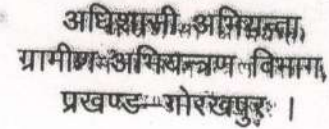 अधिशासी अभियन्ता,
ग्रामीण अभियन्त्रण विभाग,
प्रखण्ड-गोरखपुर ।